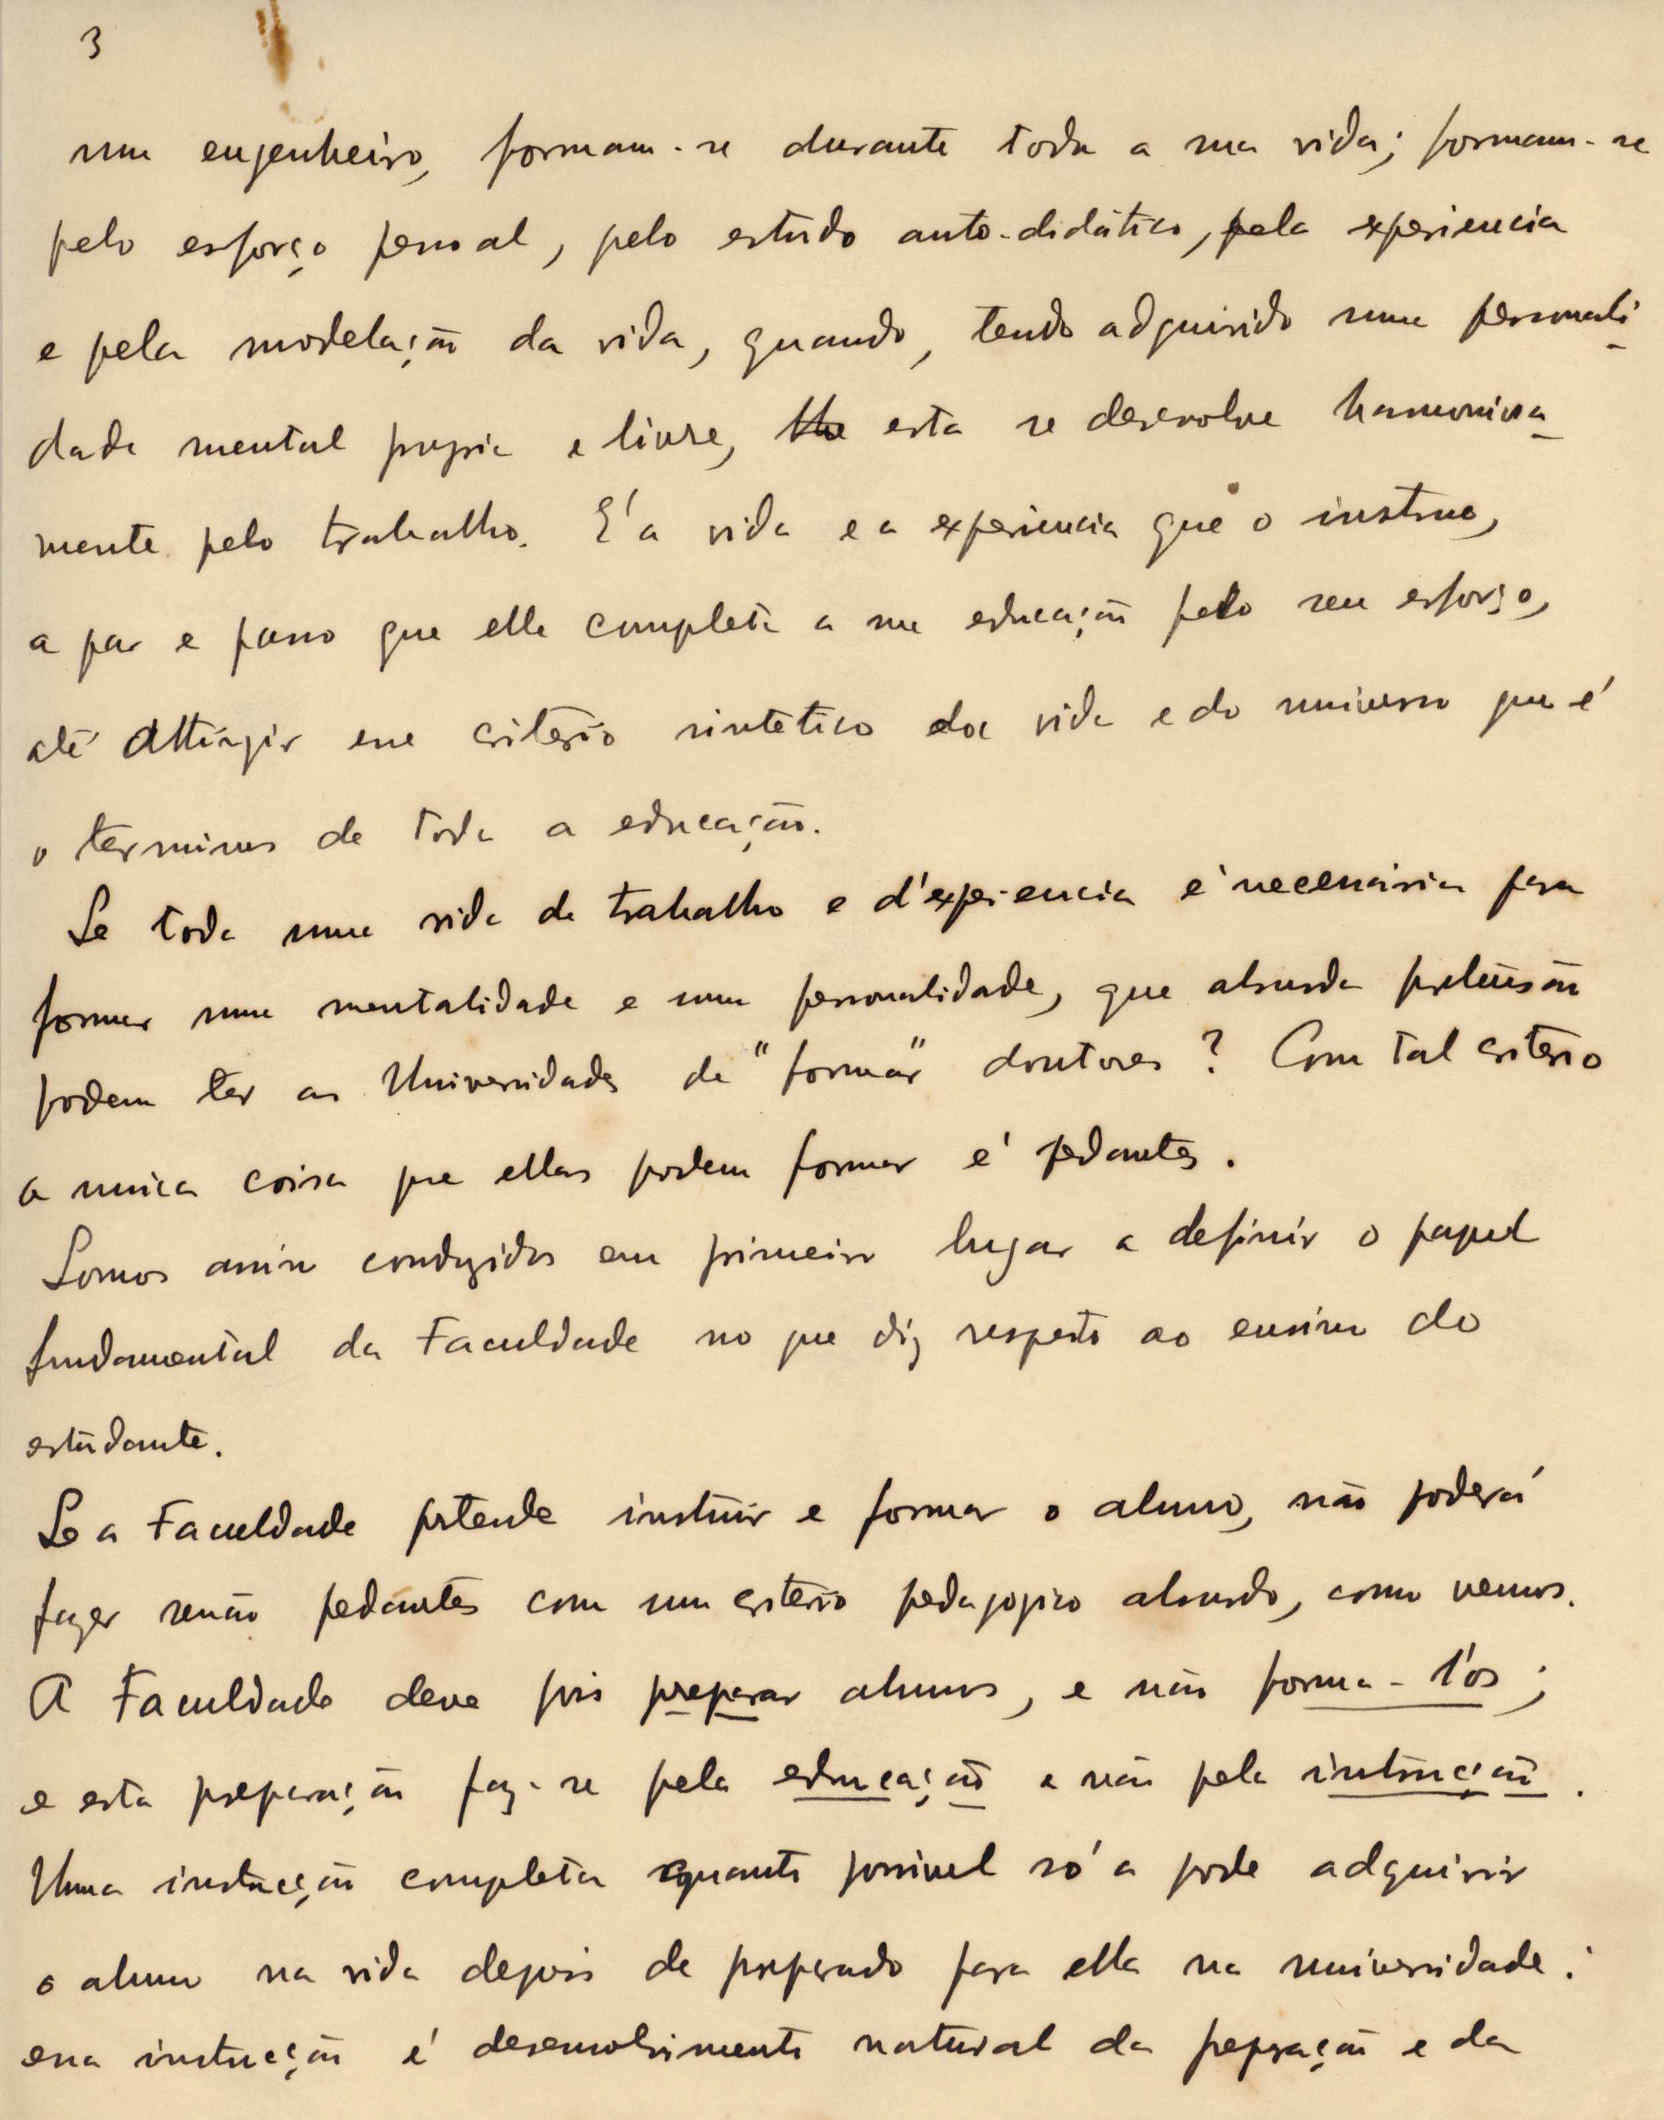 3
um engenheiro, formam-se durante toda a sua vida; formam-se
pelo esforço pessoal, pelo estudo auto-didático, pela experiencia
e pela modelação da vida, quando, tendo adquirido uma personali
dade mental propria e livre, esta se desevolve harmoniosa
mente pelo trabalho. E' a vida e a experiencia que o instrue,
a par e passo que elle completa a sua educação pelo seu esforço,
até attingir esse criterio sintetico da vida e do universo que é
o terminus de toda a educação.
Se toda uma vida de trabalho e d'experiencia é necessaria para
formar uma mentalidade e uma personalidade, que absurda pretensão
podem ter as Universidades de "formar" doutores? Com tal criterio
a unica coisa que ellas podem formar é pedantes.
Somos assim conduzidos em primeiro lugar a definir o papel
fundamental da Faculdade no que diz respeito ao ensino do
estudante.
Se a Faculdade pretende instruir e formar o aluno, não poderá
fazer senão pedantes com um criterio pedagogico absurdo, como vemos.
A Faculdade deve pois preparar alunos, e não forma-l'os;
e esta preparação faz-se pela educação e não pela instrucção.
Uma instrucção completa quanto possivel só a pode adquirir
o aluno na vida depois de preparado para ella na universidade:
essa instrucção é desenvolvimento natural da preparação e da